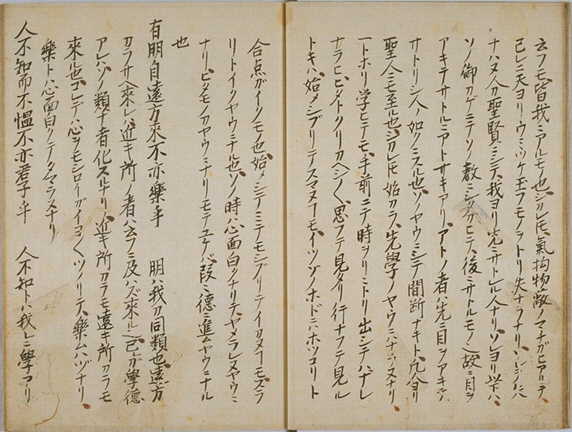 云フモ皆我ニアルモノ也シカレ𪜈氣拘物蔽ノマチガヒアリテ
己レニ天ヨリウミツケ玉フモノヲトリ失ナフナリ
人カ聖賢ニシテ我ヨリ先ニサトレル人ナリソレヨリ以下ハ
ソノ御カゲニテソノ教ニシタガヒテ後ニサトルモノ也故ニ目ヲ
アキテサトルニアトサキアリアトノ者ハ先ニ目ヲアキテ
サトリシ人ノ如クニスル也ソノヤウニシテ間断ナキト凡人ヨリ
聖人ニモ至ル也シカレ𪜈始カラ先學ノヤウニハナラヌナリ
一トホリ學ヒテモ手前ニテ時トリ出シテハナレ
ナラヒ思フテ見タリ行ナフテ見ル
トキハ始メシブリテスマヌヿモイツゾノホドニハホツコリト
合点ガイクモノ也始メシブリテイカヌヿモズラ
リトイクヤウニナル也ソノ時ハ心面白クナリテヤメラレヌヤウニ
ナリヒタモノカヤウニナリモテユケバ段〻ニ德ニ進ムヤウニナル
也
有朋自遠方來不亦樂乎 朋ハ我カ同類也遠方
カラサヘ來レバ近キ所ノ者ハ云フニ及ハズ來ル也己カ學德
アレバソノ類ナ者化スルナリ近キ所カラモ遠キ所カラモ
來ル也コレデハ心ヲモシローガイヨ〱ツノリテ樂ムハヅナリ
樂トハ心面白クテタマラヌナリ
人不知而不慍不亦君子乎 人不知トハ我レニ學アリ